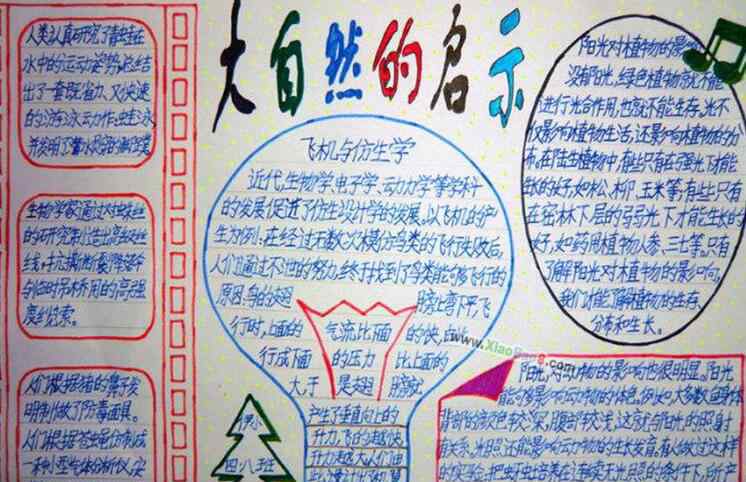 大自然的启示
人类认真研究了青蛙在
水中的运动姿势,总结
出了一套既省力、又快速
的游泳动作:蛙泳
并发明了潜水
生物学家通过对蛛丝
的研究制造出高级丝
线,抗撕断降落伞
与临时吊桥用的高强
度缆索。
人们根据猪的鼻子发
明制做了防毒面具。
人们根据苍蝇
一种小型气体分析仪,安
飞机与仿生学
近代生物学、电子学、动力学等学科
的发展促进了仿生设计学的发展。以飞机的产
生为例:在经过无数次模仿鸟类的飞行失败后,
人们通过不泄的努力,终于找到了鸟类能够飞行的
原因:鸟的翅 膀上弯下平,飞
行时,上面的 气流比下面 的快,由此
行成下面 的压力 比上面的
大于 是翅 膀
产生了垂直向上的
升力,飞的越快,
升力越大人们由
四八班
阳光对植物的影响
没有阳光,绿色植物就不能
进行光合作用,也就不能生存。光不
仅影响植物生活,还影响植物的分
布。在陆生植物中,有些只有在强光下才能
生长的好,如松、柳、玉米等;有些只有
在密林下层的弱光下才能生长的
好,如药用植物人参、三七等。只有
了解阳光对植物的影响,
我们才能了解植物的生存、
分布和生长。
www.XiaoBang.com
阳光对动物的影响也很明显。阳光
能够影响动物的体色,例如,大多数
背部的颜色较深,腹部较浅,这就与阳光的照射
有关系。光照还能影响动物的生长发育。有人做过这样
的实验:把蚜虫培养在连续无光照的条件下,所产